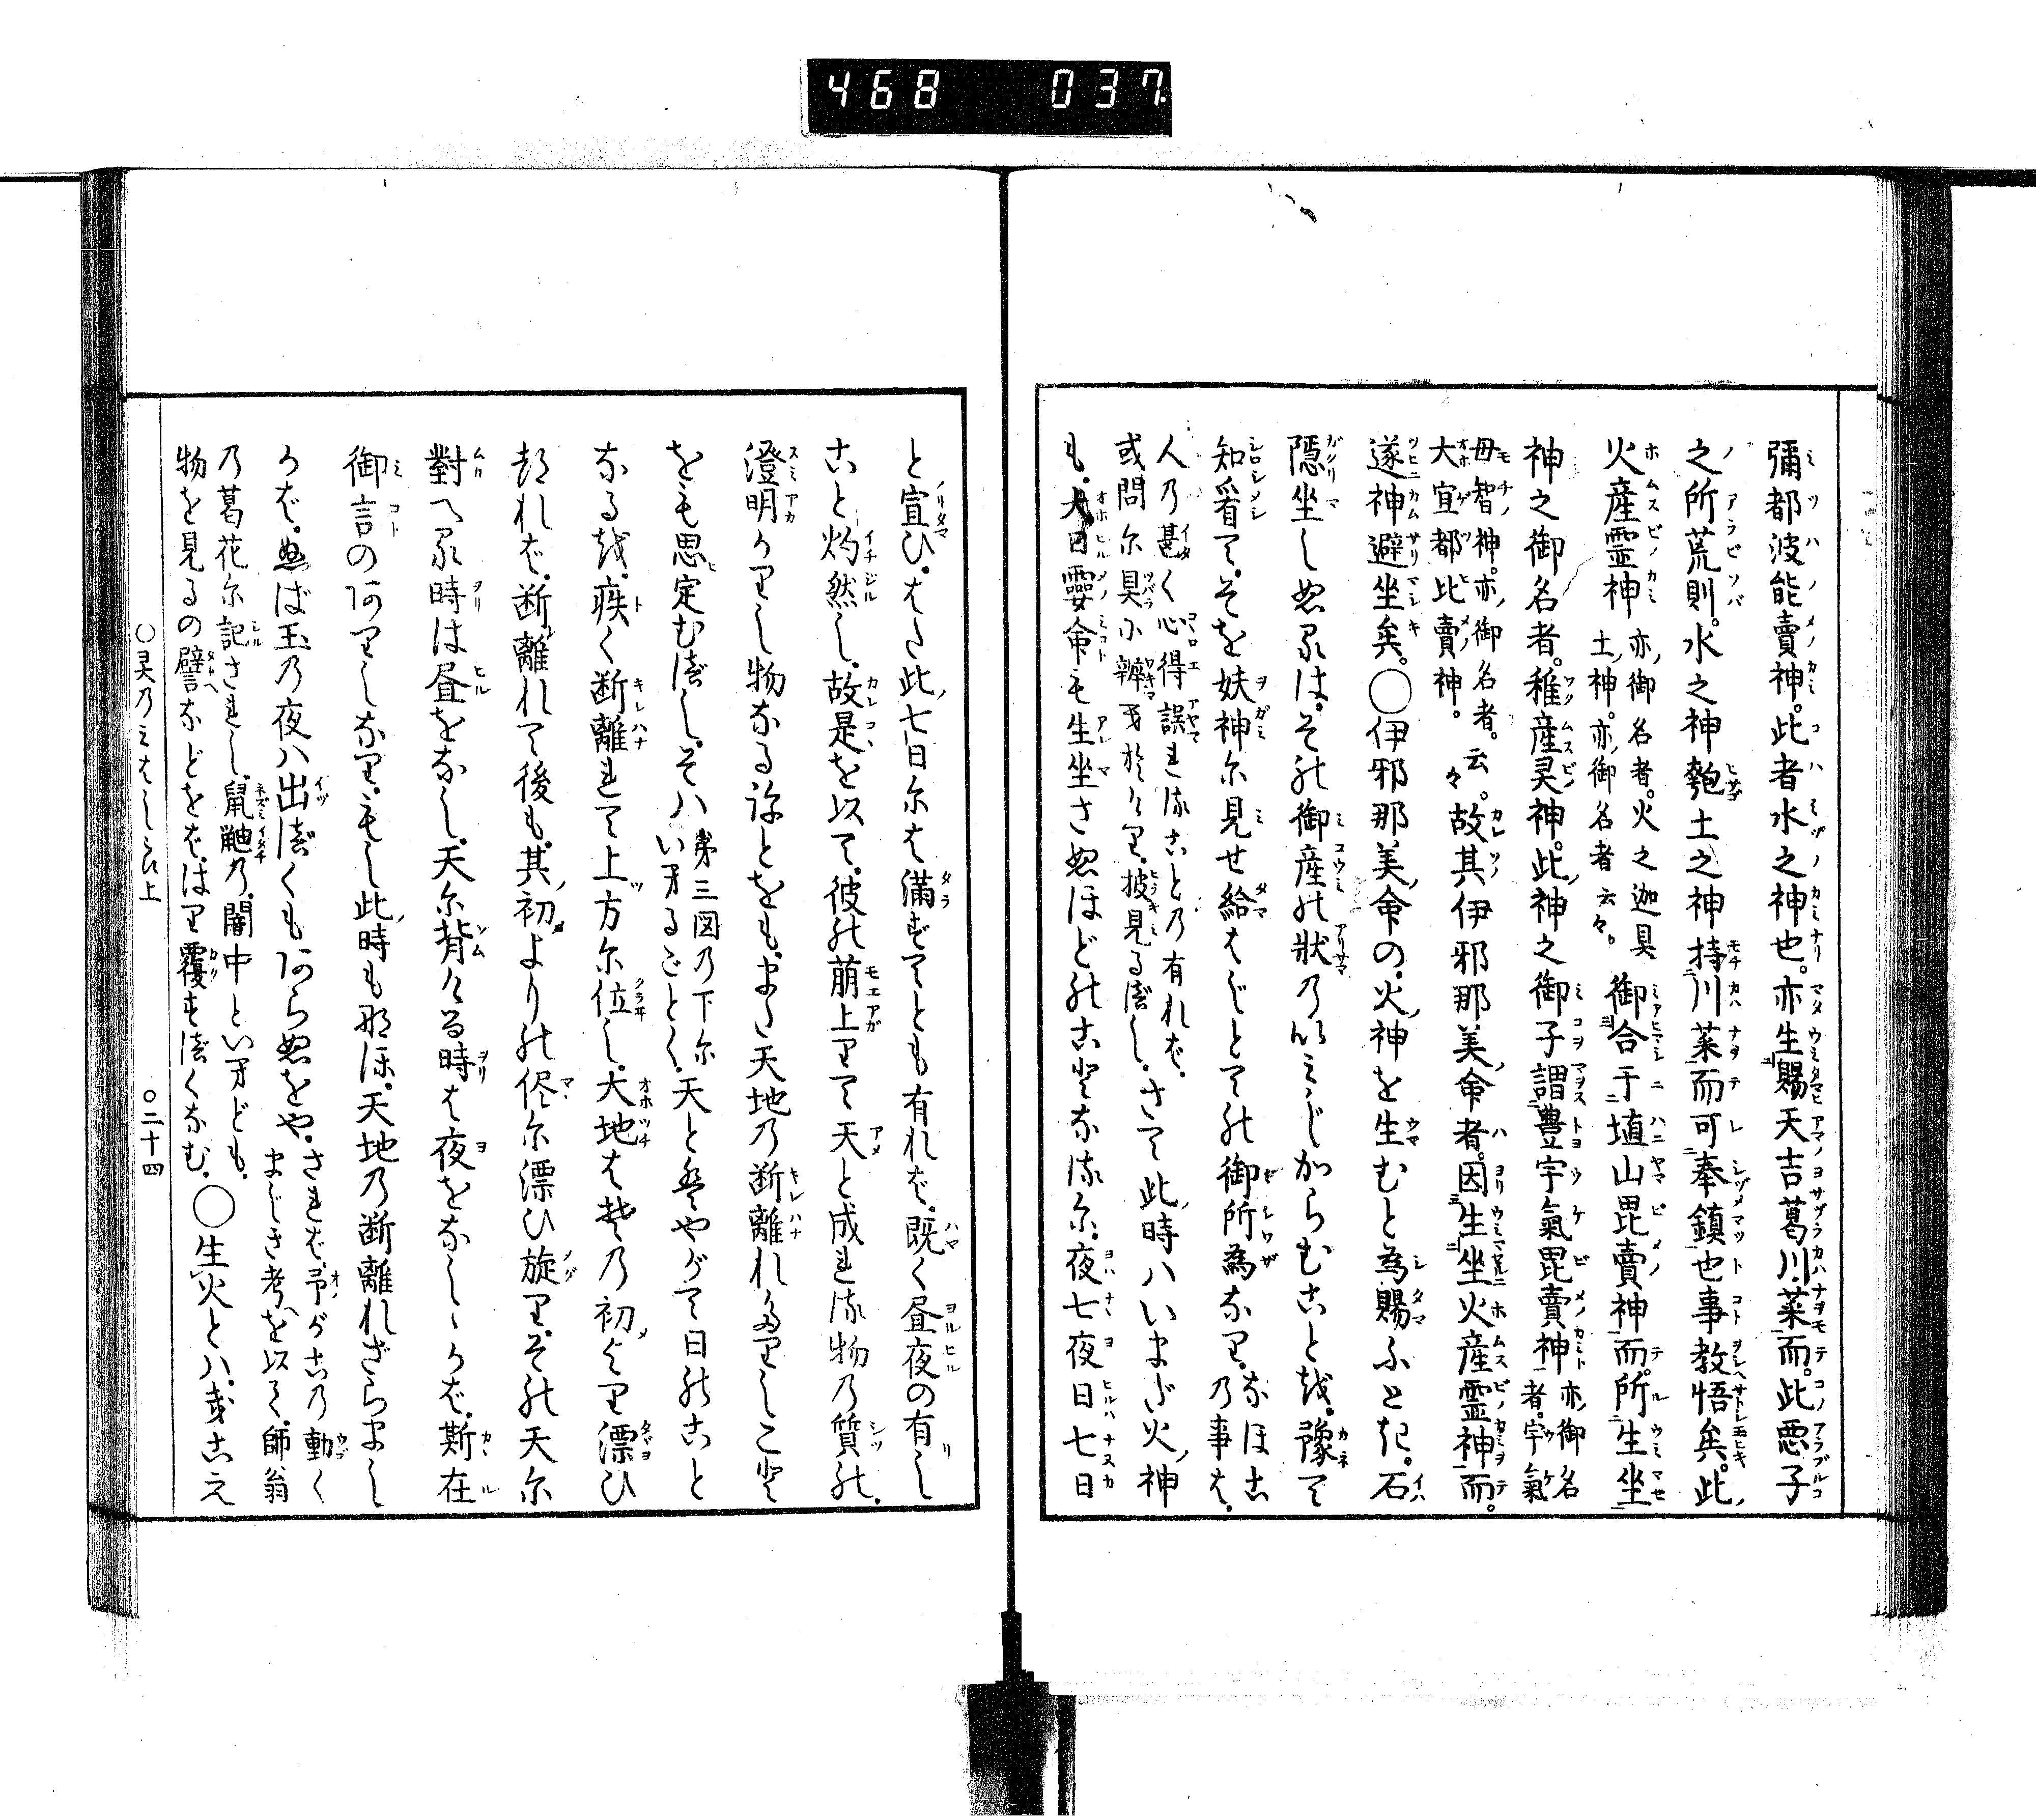 468 037
彌都波能賣神。此者水之神也。亦生賜天吉葛川菜而。此悪子
之所荒則。水之神匏土之神持川菜而可奉鎮也事教悟矣。此
火産霊神 亦御名者。火之迦具
土神。亦御名者云々。 御合于埴山毘賣神而。所生坐
神之御名者。稚産灵神。此神之御子謂豊宇氣毘賣神 亦御名
者。宇氣
母智神。亦御名者。
大宜都比賣神。 云々。故其伊邪那美命者。因生坐火産霊神而。
遂神避坐矣。〇伊邪那美命の。火神を生むと為賜ふとき。石
隠坐しぬるは。その御産の状乃いみじからむことを。豫て
知看て。そを妋神尓見せ給はじとての御所為なり。なほこの事は。
人乃甚く心得誤れることの有れば。
或問尓具に辨へおけり。披見るべし。 さて此時ハいまだ火神
も。大日孁命も生坐さぬほどのことなるに。夜七夜日七日
と宣ひ。はた此七日尓は満ずとも有れば。既く昼夜の有し
こと灼然し。故是を以て。彼の萌上りて天と成れる物乃質の。
澄明かりし物なるほどをも。また天地乃断離れたりしこと
をも思定むべし。そハ 第三図乃下尓
いへるごとく。 天と云やがて日のこと
なるを。疾く断離れて上方尓位し。大地は其の初めより漂ひ
却れば。断離れて後も。其初よりの侭尓漂ひ旋り。その天尓
對へる時は昼をなし。天尓背ける時は夜をなしゝかば。斯在
御言のありしなり。もし此時も那ほ。天地乃断離れざらまし
かば。ぬば玉乃夜ハ出べくもあらぬをや。 されば予がこの動く
まじき考を以て。師翁
乃葛花尓記されし。鼠鼬乃。闇中といへども。
物を見るの譬などをば。はり覆すべくなむ。 〇生火とハ。或古え
〇灵乃みはしら上 〇二十四